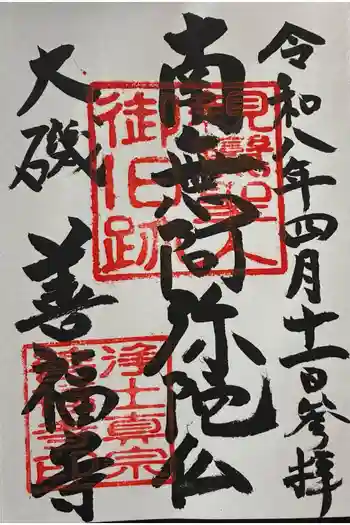 令和八年四月十一日参拝
南無阿弥陀仏
大磯
善福寺
親鸞聖人
御旧跡
浄土真宗
善福寺印